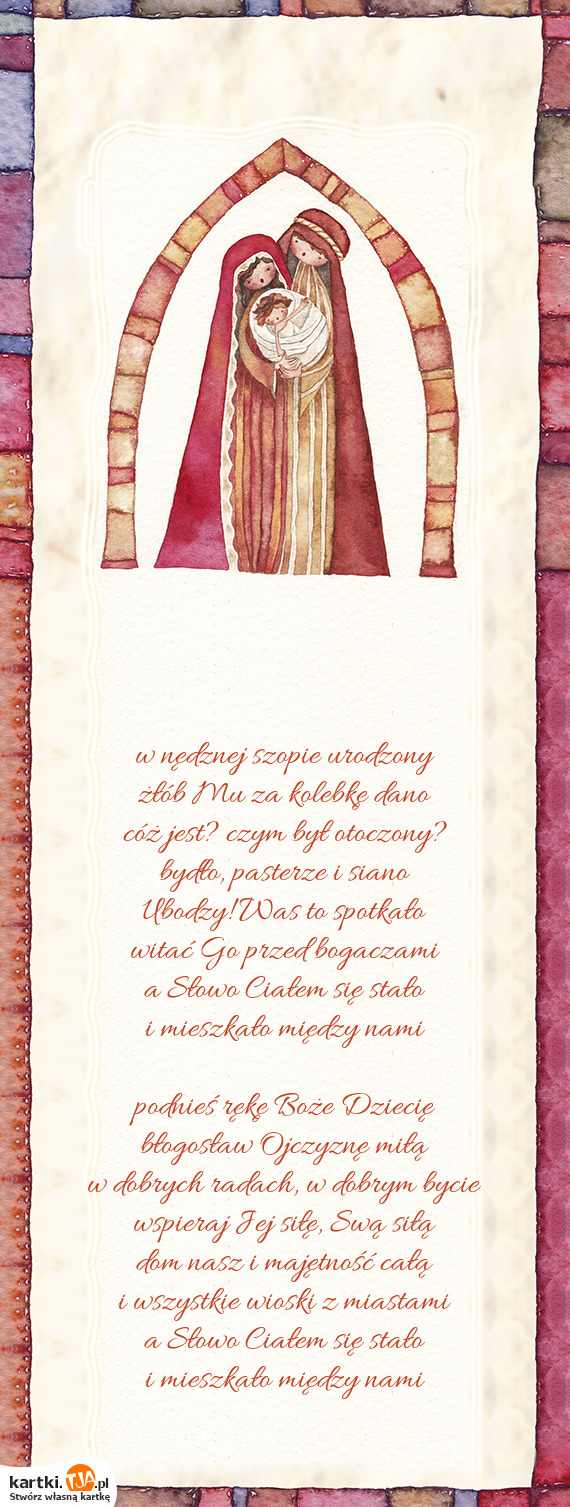 w nędznej szopie urodzony
żłób Mu za kolebkę dano
cóż jest? czym był otoczony?
bydło, pasterze i siano
Ubodzy! Was to spotkało
witać Go przed bogaczami
a Słowo Ciałem się stało
i mieszkało między nami
podnieś rękę Boże Dziecię
błogosław Ojczyznę miłą
w dobrych radach, w dobrym bycie
wspieraj Jej siłę, Swą siłą
dom nasz i majętność całą
i wszystkie wioski z miastami
a Słowo Ciałem się stało
i mieszkało między nami
kartki.TJA.pl
Stwórz własną kartkę